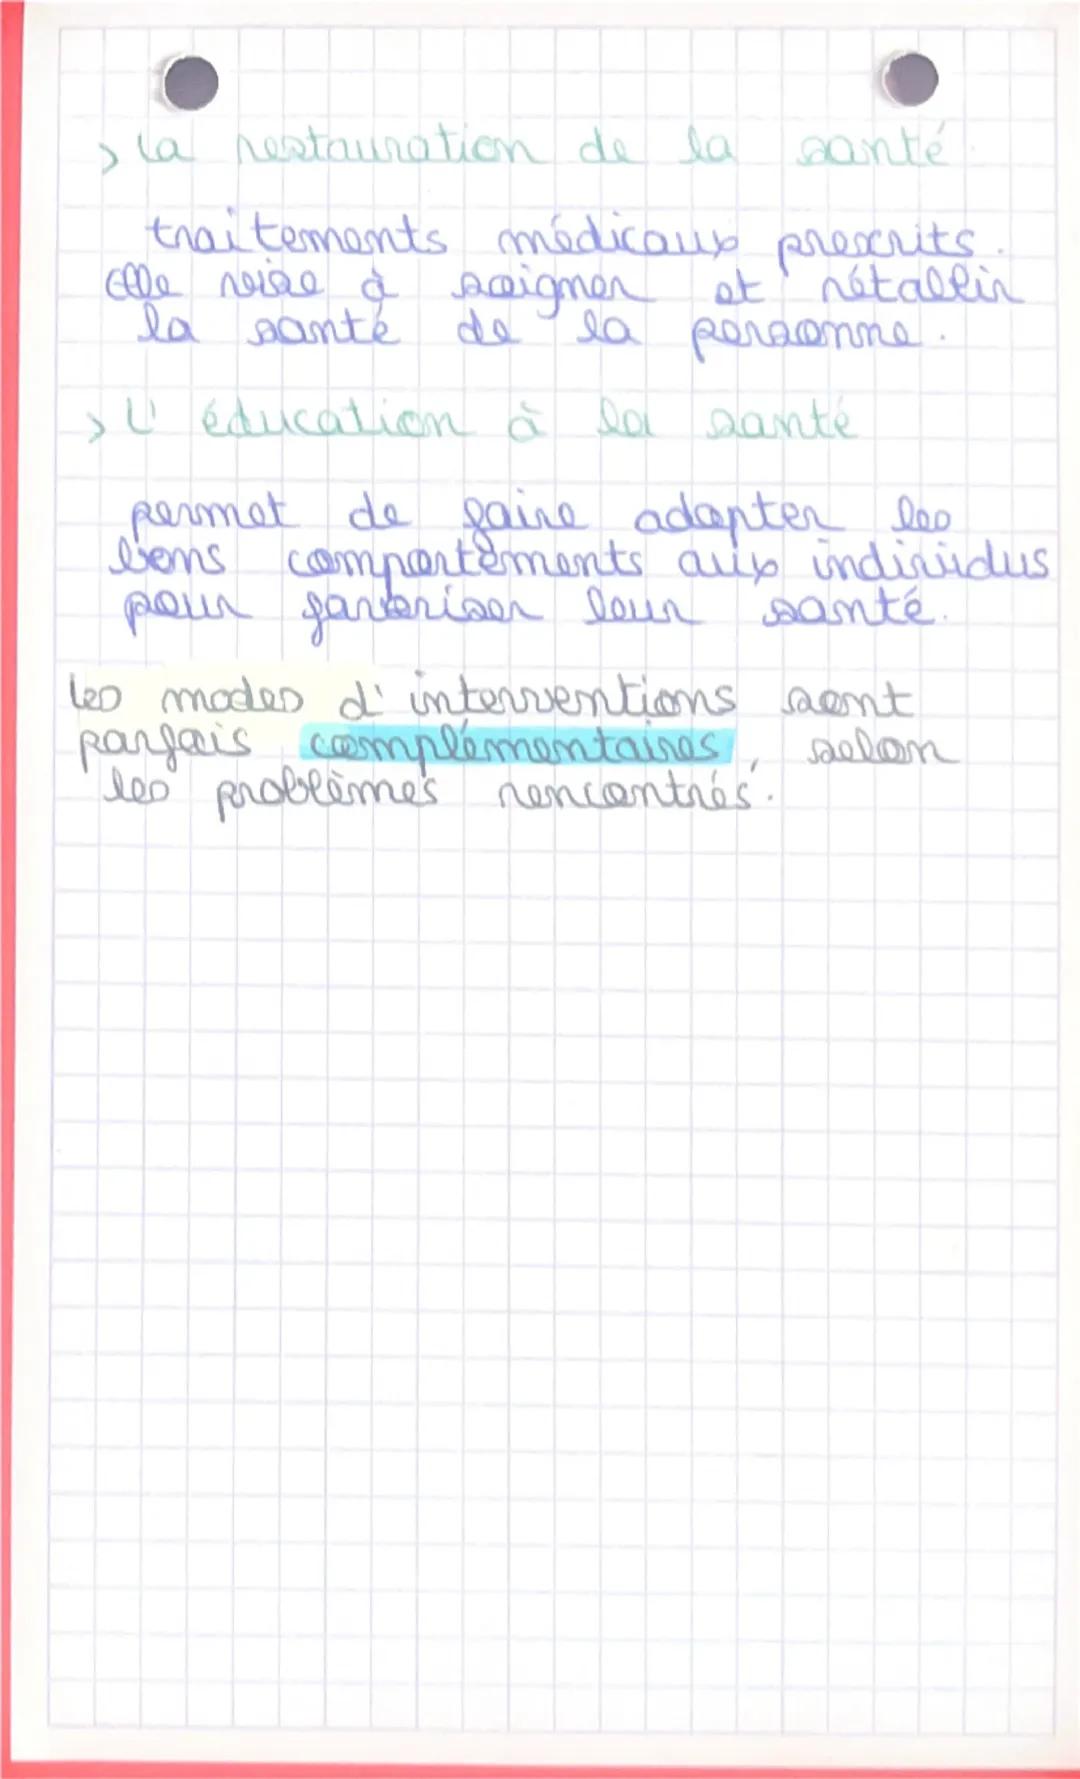 > La restauration de la santé
traitements médicaux prescrits.
Elle vise à soigner et rétablir
la santé de la personne.
> L'éducation à la santé
permet de faire adopter les
bons comportements aux individus
pour favoriser leur santé.
les modes d'interventions sont
parfois complémentaires, selon
les problèmes rencontrés.